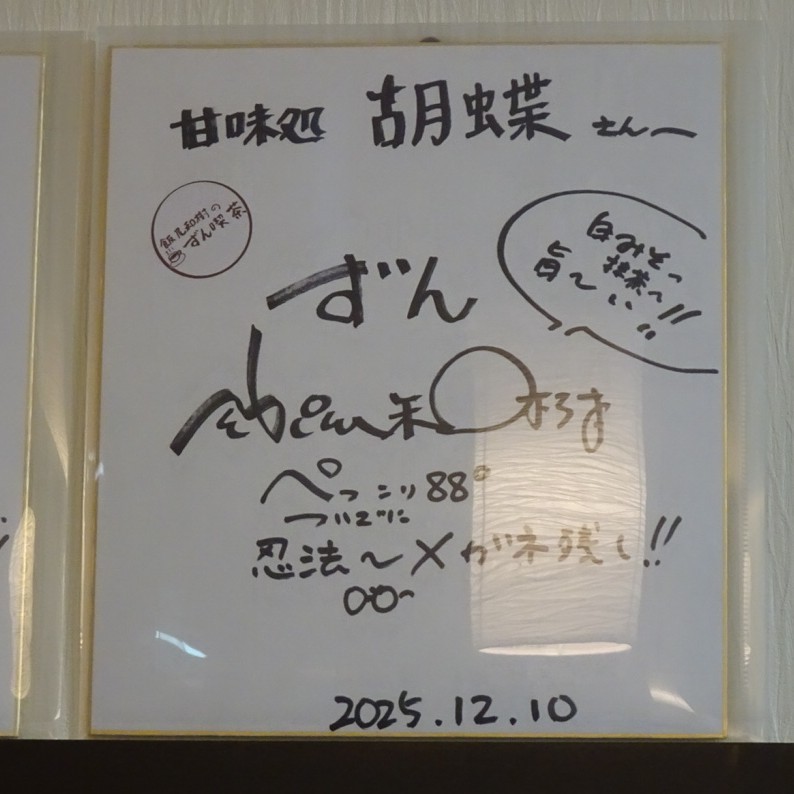 甘味処 胡蝶 さん〜
飯尾和樹の
ずん喫茶
白みそ〜
抹茶〜!!
旨〜い!!
ずん
飯尾和樹
ぺっこり88°
ついでに
忍法〜メガネ残し!!
2025.12.10